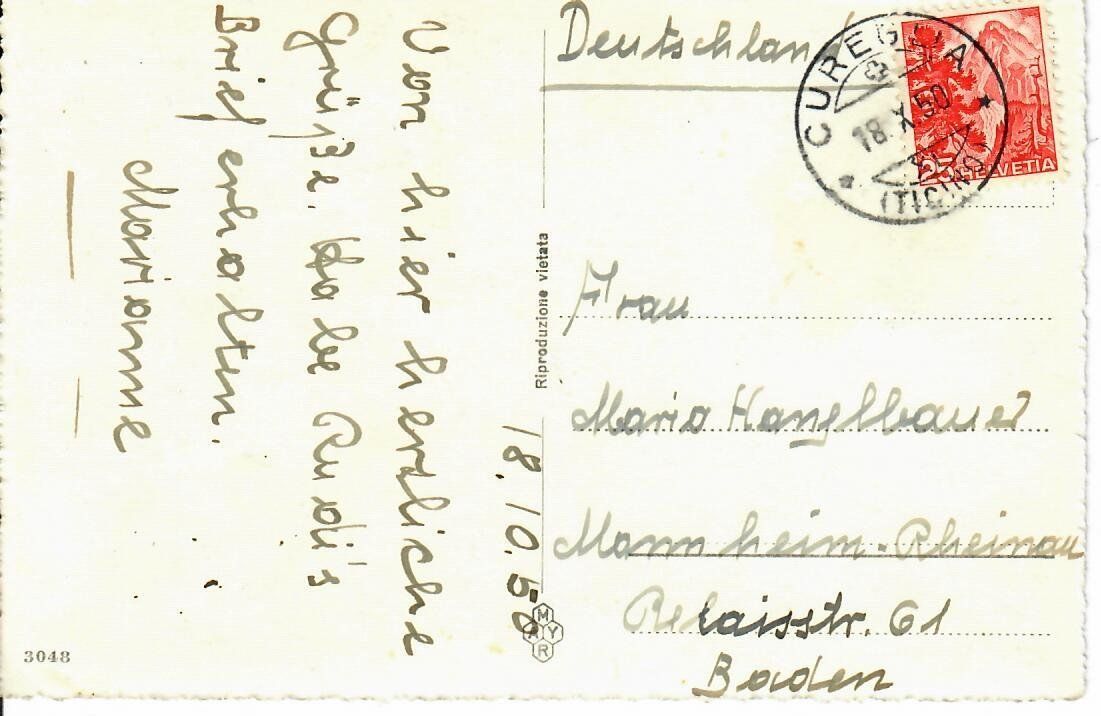 18.10.50
Von hier herzliche
Grüße. Habe Rudi's
Brief erhalten.
Marianne
Deutschland
CUREGGIA
18.X.50
(TICINO)
25 HELVETIA
Frau
Maria Hanglbauer
Mannheim-Rheinau
Relaisstr. 61
Baden
Riproduzione vietata
MAYR
3048